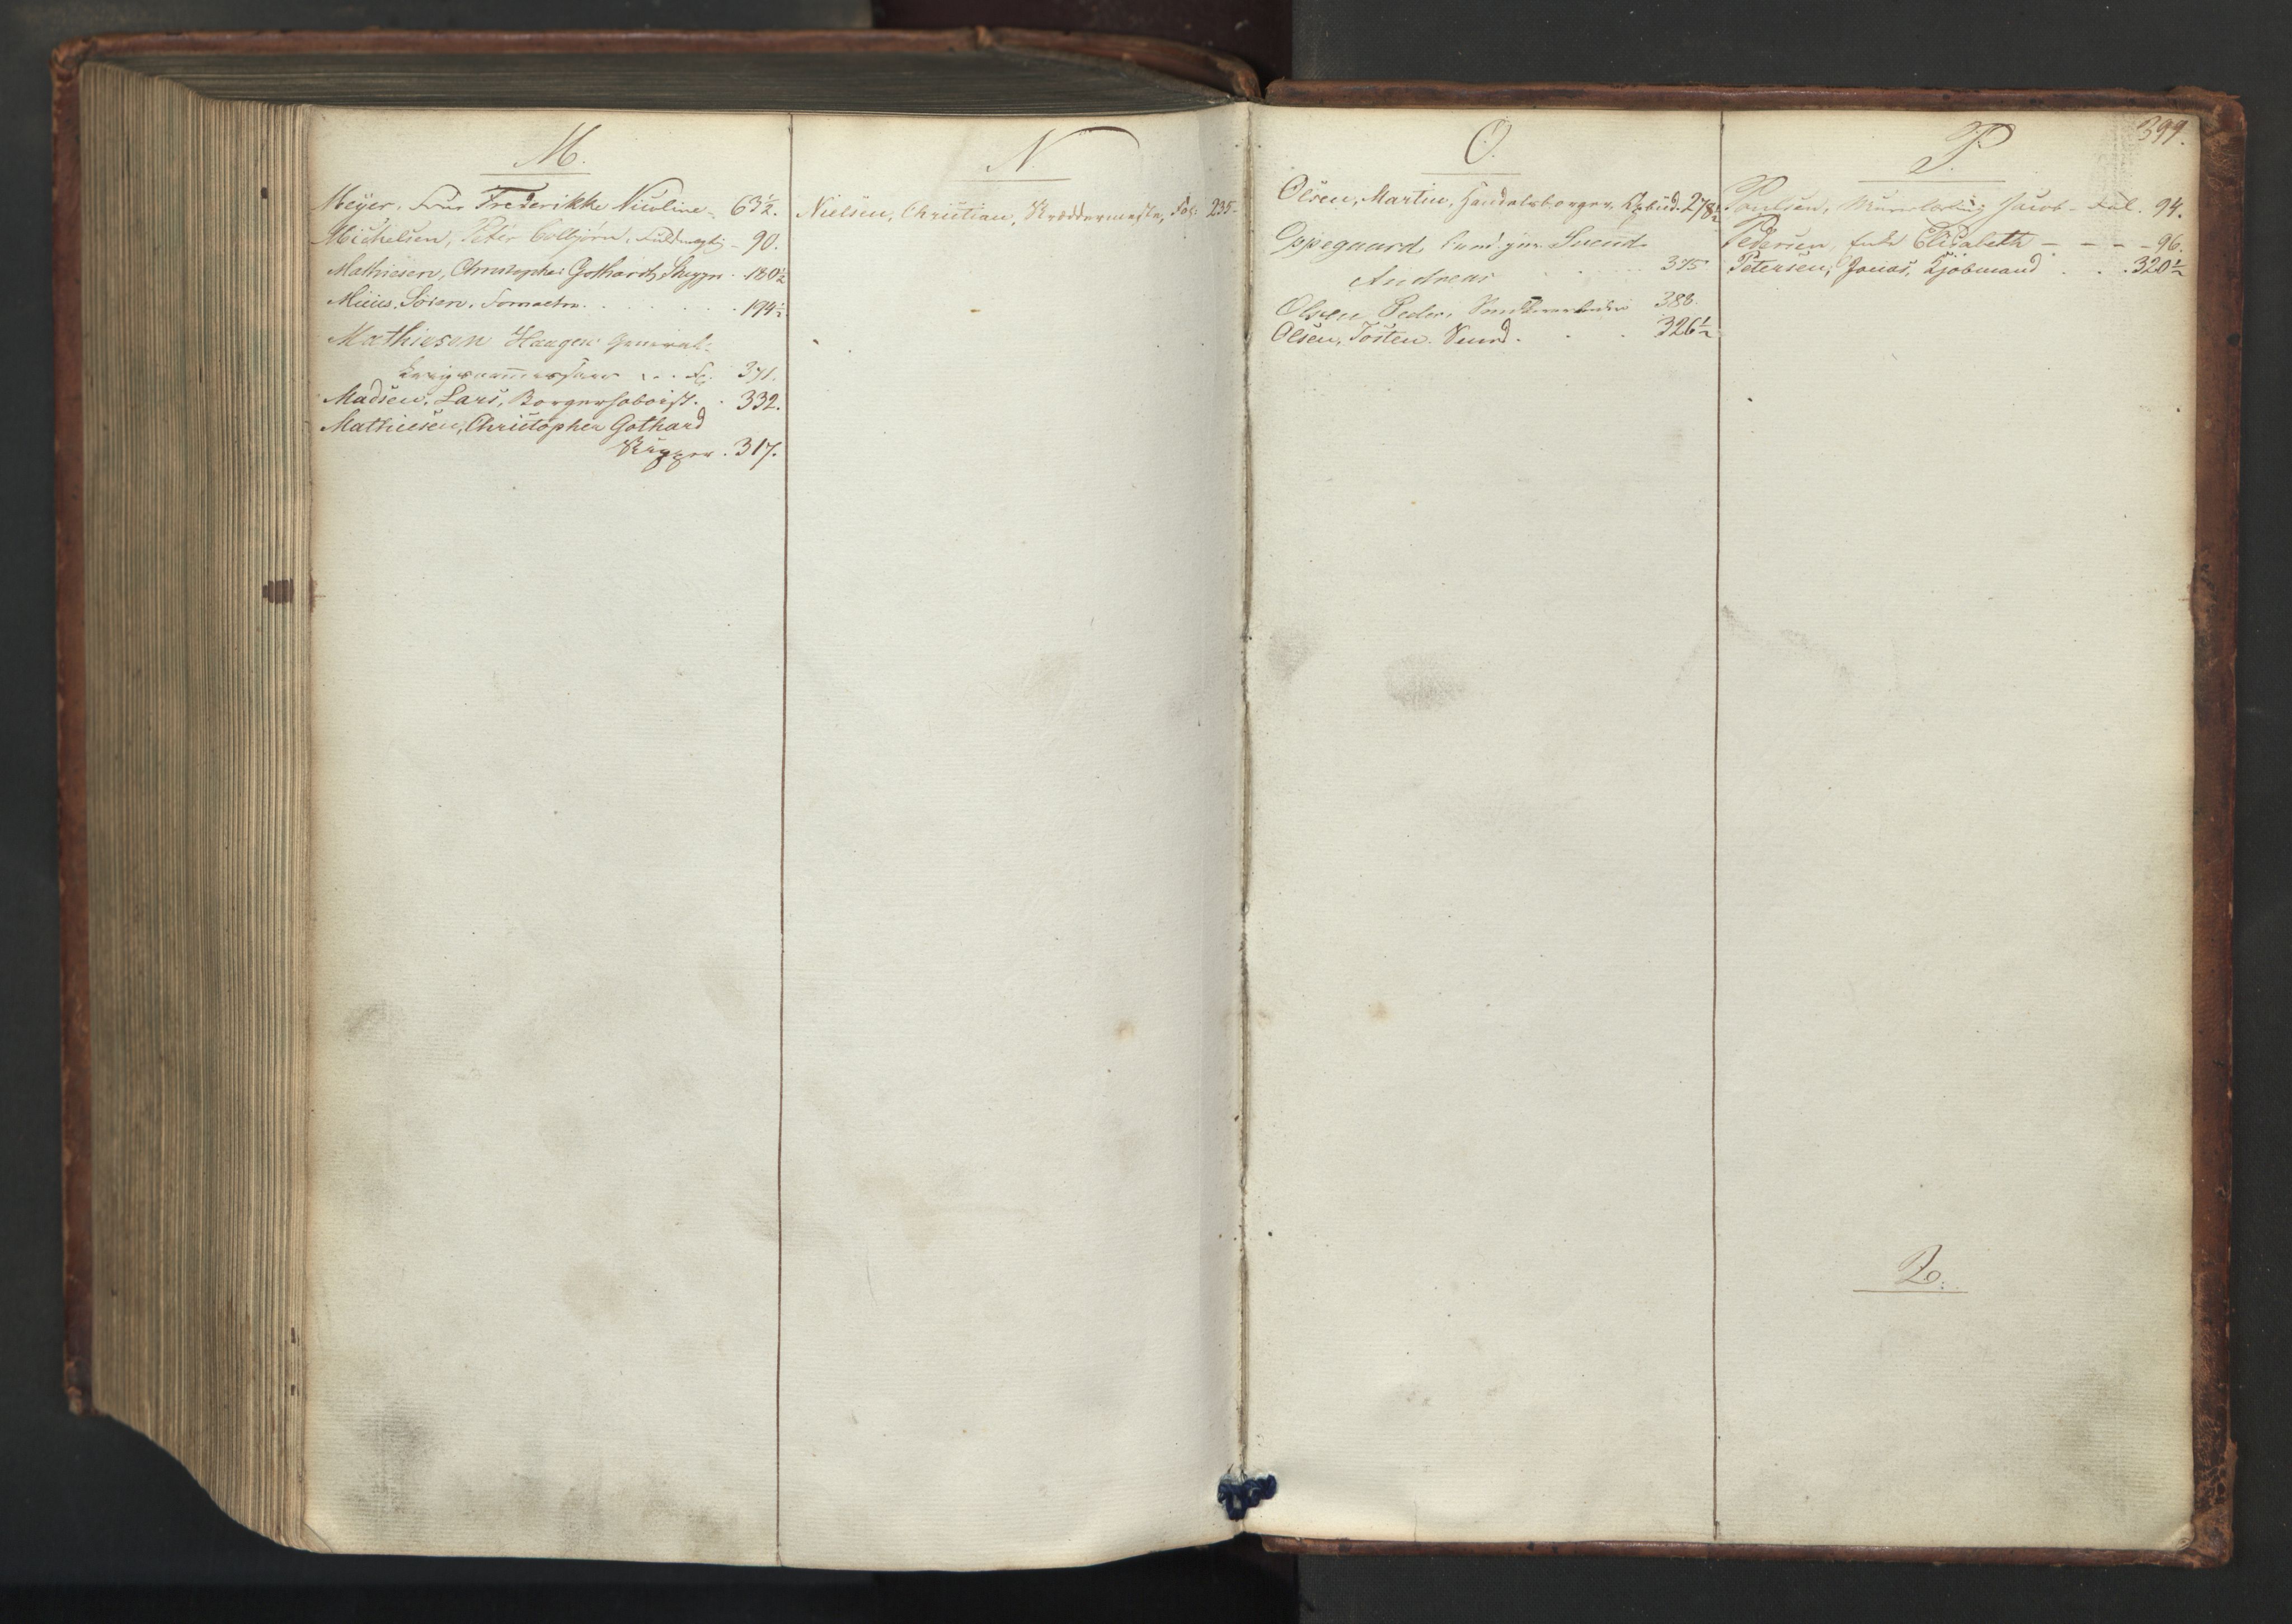 M.
Meyer, Frue Frederikke Nicoline 63½.
Michelsen, Peter Colbjørn, Fuldmægtig - 90.
Mathiesen, Christopher Gothard, Skipper . 180½
Søren. . . . . 194½
Mathiesen Haagen General-
Krigscommissair . . . Fol. 371.
Madsen, Lars, Borgerhoboist. . 332.
Mathiesen, Christopher Gothard
Skipper . 317.
N
Nielsen, Christian, Skræddermester, Fol: 235.
O.
Olsen, Martin, Handelsborger, 278½
Oppegaard Svend
Andreas . . . 375
Olsen Peder, 388.
Olsen, Tosten. . . . 326½
P.
399.
Poulsen, Jacob - Fol. 94.
Pedersen, Enke Elisabeth - - - - 96.
Petersen, Jonas, Kjöbmand . . . 320½
Q.